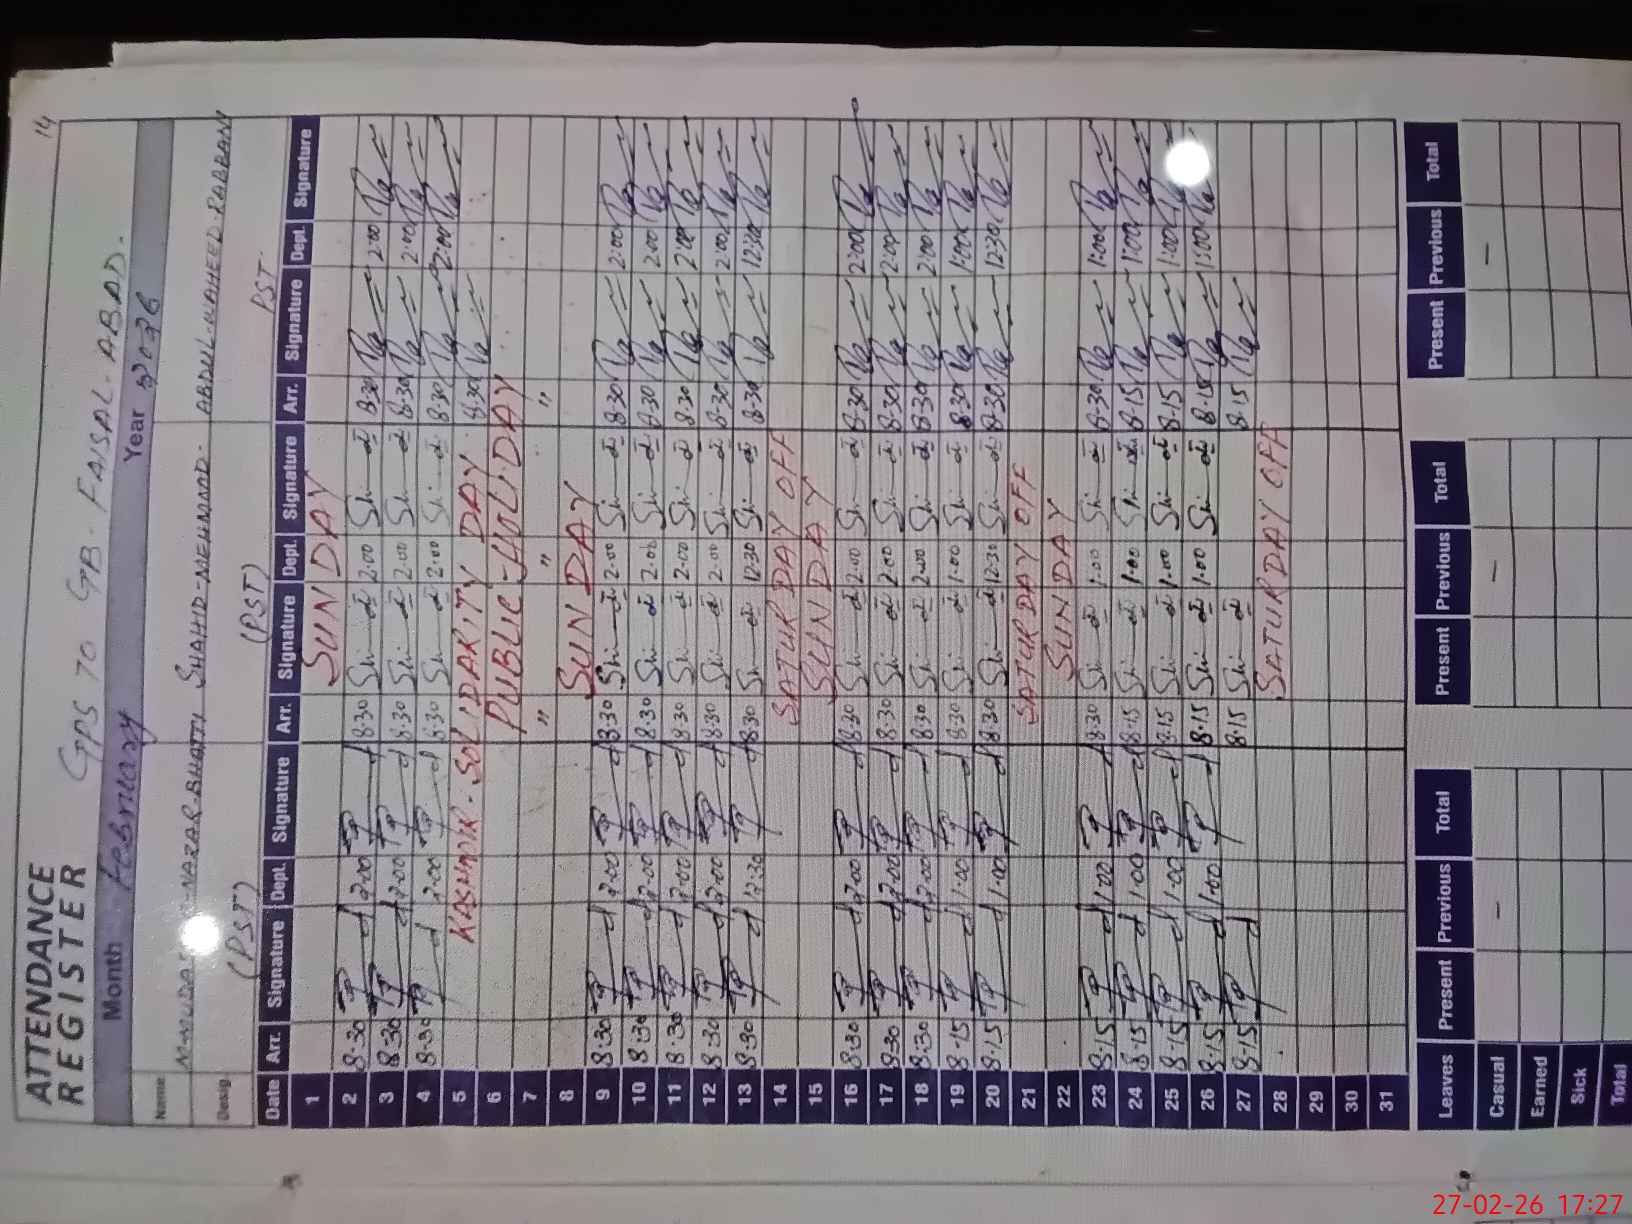 14
ATTENDANCE
REGISTER
GPS TO GB. FAISAL. ABAD.
Month February Year 2026
Name NAZAR BHATTI SHAHID-MEHMOOD. ABDUL-WAHEED-RABBANI
Desig. (PST) (PST) PST.
Date Arr. Signature Dept. Signature Arr. Signature Dept. Signature Arr. Signature Dept. Signature
1 SUNDAY
2 8:30 2:00 8:30 2:00 8:30 2:00
3 8:30 2:00 8:30 2:00 8:30 2:00
4 8:30 2:00 8:30 2:00 8:30 2:00
5 KASHMIR. SOLIDARITY DAY 8:30
6 PUBLIC-HOLI.DAY
7 " " "
8 SUNDAY
9 8:30 2:00 8:30 2:00 8:30 2:00
10 8:30 2:00 8:30 2:00 8:30 2:00
11 8:30 2:00 8:30 2:00 8:30 2:00
12 8:30 2:00 8:30 2:00 8:30 2:00
13 8:30 12:30 8:30 12:30 8:30 12:30
14 SATURDAY OFF
15 SUNDAY
16 8:30 2:00 8:30 2:00 8:30 2:00
17 8:30 2:00 8:30 2:00 8:30 2:00
18 8:30 2:00 8:30 2:00 8:30 2:00
19 8:15 1:00 8:30 1:00 8:30 1:00
20 8:15 1:00 8:30 12:30 8:30 12:30
21 SATURDAY OFF
22 SUNDAY
23 8:15 1:00 8:30 1:00 8:30 1:00
24 8:15 1:00 8:15 1:00 8:15 1:00
25 8:15 1:00 8:15 1:00 8:15 1:00
26 8:15 1:00 8:15 1:00 8:15 1:00
27 8:15 8:15 8:15
28 SATURDAY OFF
29
30
31
Leaves Present Previous Total Present Previous Total Present Previous Total
Casual – – –
Earned
Sick
Total
27-02-26 17:27